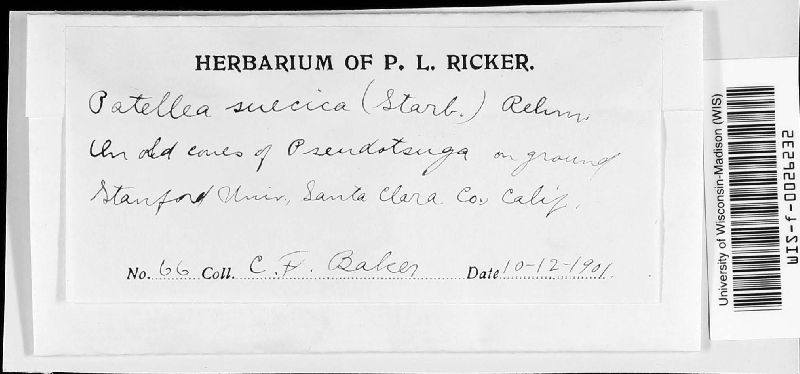 HERBARIUM OF P. L. RICKER.
Patellea suecica (Starb.) Rehm.
On old cones of Pseudotsuga on ground
Stanford Univ., Santa Clara Co., Calif.
No. 66 Coll. C. F. Baker Date 10-12-1901.
University of Wisconsin-Madison (WIS)
WIS-f-0026232